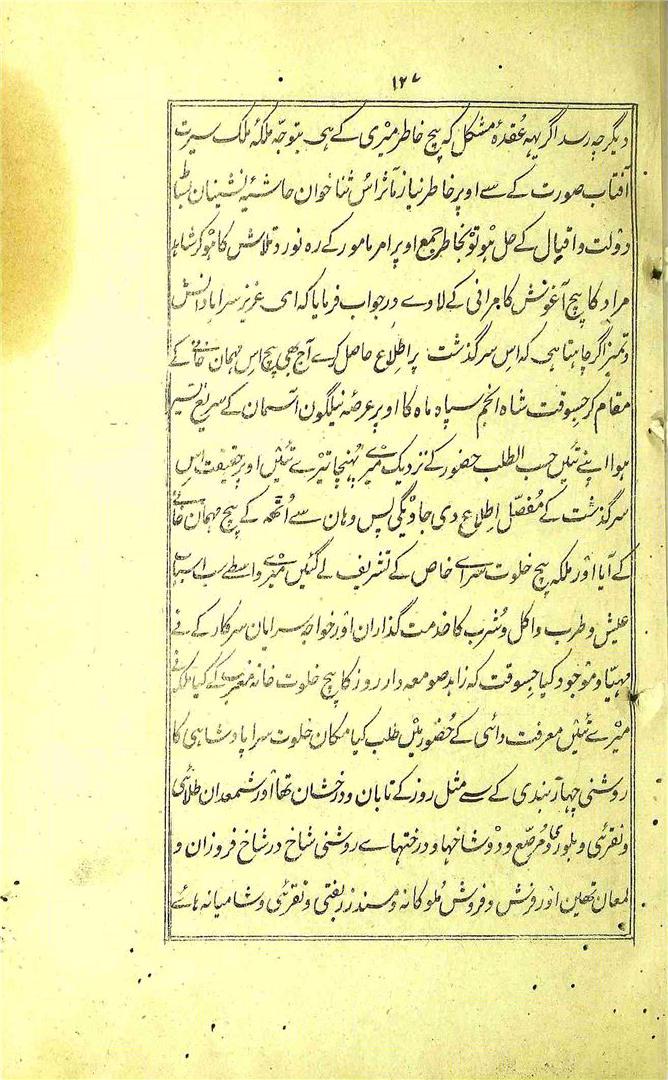 ١٢٧
دیگر چہ رسد اگر یہہ عُقدۂ مشکل کہ بیچ خاطر میری کے ہی بتوجّہ ملکۂ ملک سیرت
آفتاب صورت کے سے اوپر خاطر نیاز مآثر اس ثنا خوان حاشیہ نشینان بساط
دولت و اقبال کے حل ہو تو بخاطر جمع اوپر امر مامور کے رہ نورد تلاش کا ہو کر شاہد
مراد کا بیچ آغوش کامرانی کے لاوے در جواب فرمایا کہ ای عزیز سراپا دانش
و تمیز اگر چاہتا ہی کہ اس سرگذشت پر اطلاع حاصل کرے آج بھی بیچ اس مہمان خانے کے
مقام کر جسوقت شاہ انجم سپاہ ماہ کا اوپر عرصۂ نیلگون آسمان کے سریع السیر
ہوا اپنے تئیں حسب الطلب حضور کے نزدیک میرے پہنچا تیرے تئیں اوپر حقیقت اس
سرگذشت کے مُفصّل اطلاع دی جاویگی پس وہان سے اُٹھہ کے بیچ مہمان خانے
کے آیا اور ملکہ بیچ خلوت سراے خاص کے تشریف لے گئیں میرے واسطے سب اسباب
عیش و طرب و اکل و شرب کا خدمت گذاران اور خواجہ سرایان سرکار کے نے
مہیّا و موجود کیا جسوقت کہ زاہد صومعہ دار روز کا بیچ خلوت خانۂ مغرب کے گیا ملکہ نے
میرے تئیں معرفت دائی کے حُضور میں طلب کیا مکان خلوت سرا پادشاہی کا
روشنی چہار بندی کے سے مثل روز کے تابان و درخشان تھا اور شمعدان طلائی
و نقرئی و بلوری و مُرصّع و دوشاخہا و درختہاے روشنی شاخ در شاخ فروزان و
لمعان تھین اور فرش و فروش مُلوکانہ و مسند زربفتی و نقرئی و شامیانہ ہاے